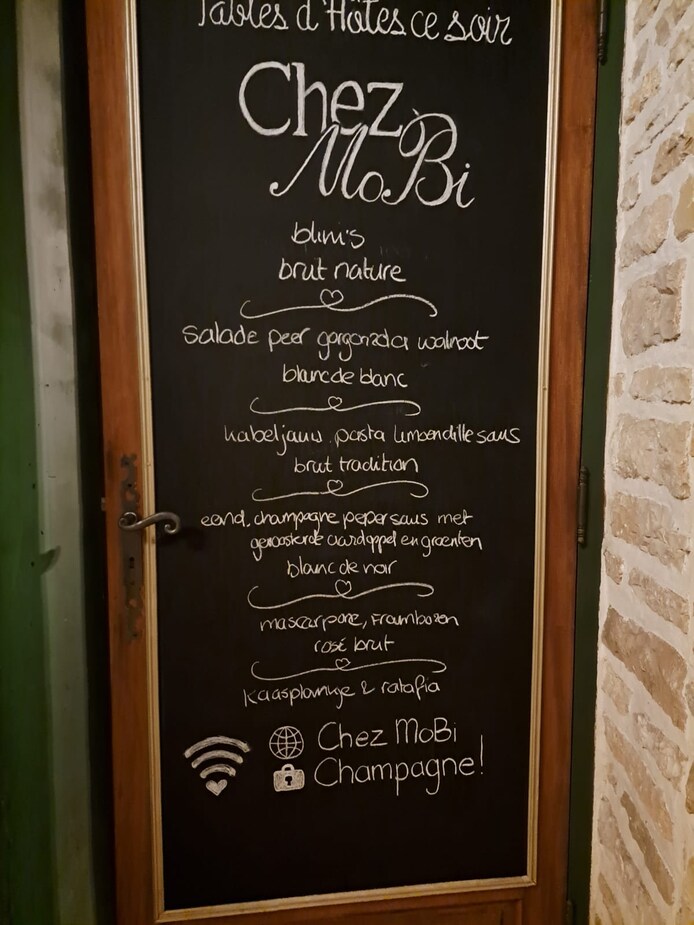 Tables d'Hôtes ce soir
Chez
MoBi
blini's
brut nature
salade peer gorgonzola walnoot
blanc de blanc
kabeljauw, pasta limoendille saus
brut tradition
eend, champagne peper saus met
geroosterde aardappel en groenten
blanc de noir
mascarpone, frambozen
rosé brut
kaasplankje & ratafia
Chez MoBi
Champagne!